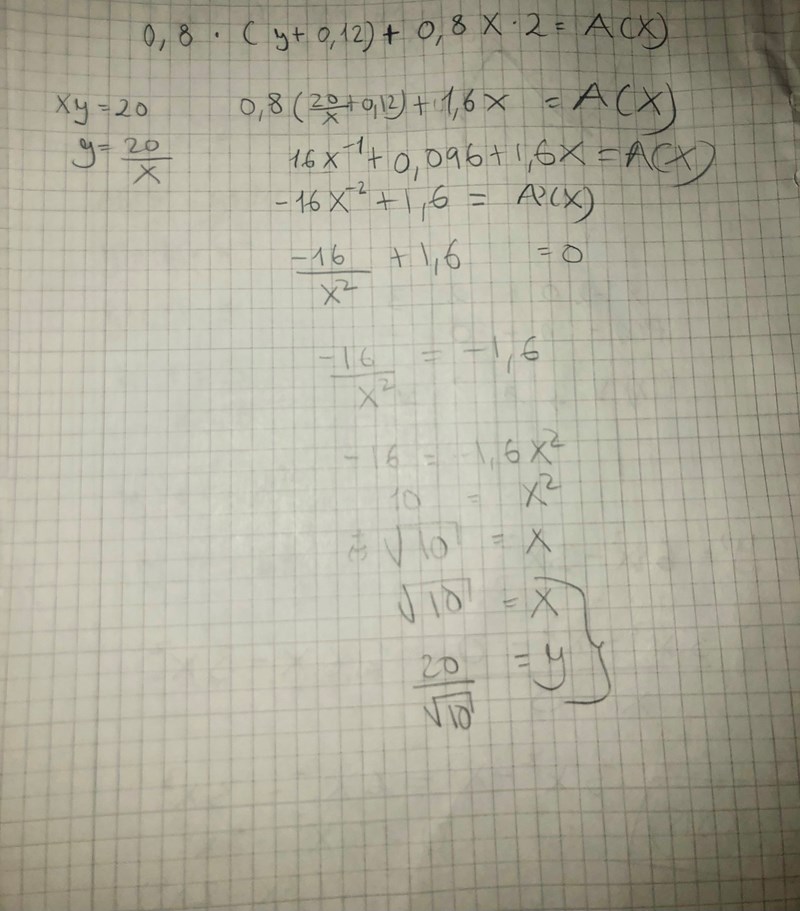 0,8 · (y+0,12)+0,8x·2=A(x)
xy=20
0,8(20/x+0,12)+1,6x =A(x)
y=20/x
16x⁻¹+0,096+1,6x=A(x)
-16x⁻²+1,6 = A'(x)
-16/x² +1,6 =0
-16/x² = -1,6
-16 = -1,6x²
10 = x²
±√10 = x
√10 = x
20/√10 = y